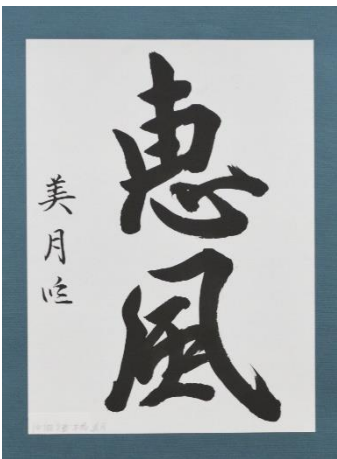 恵風
美月